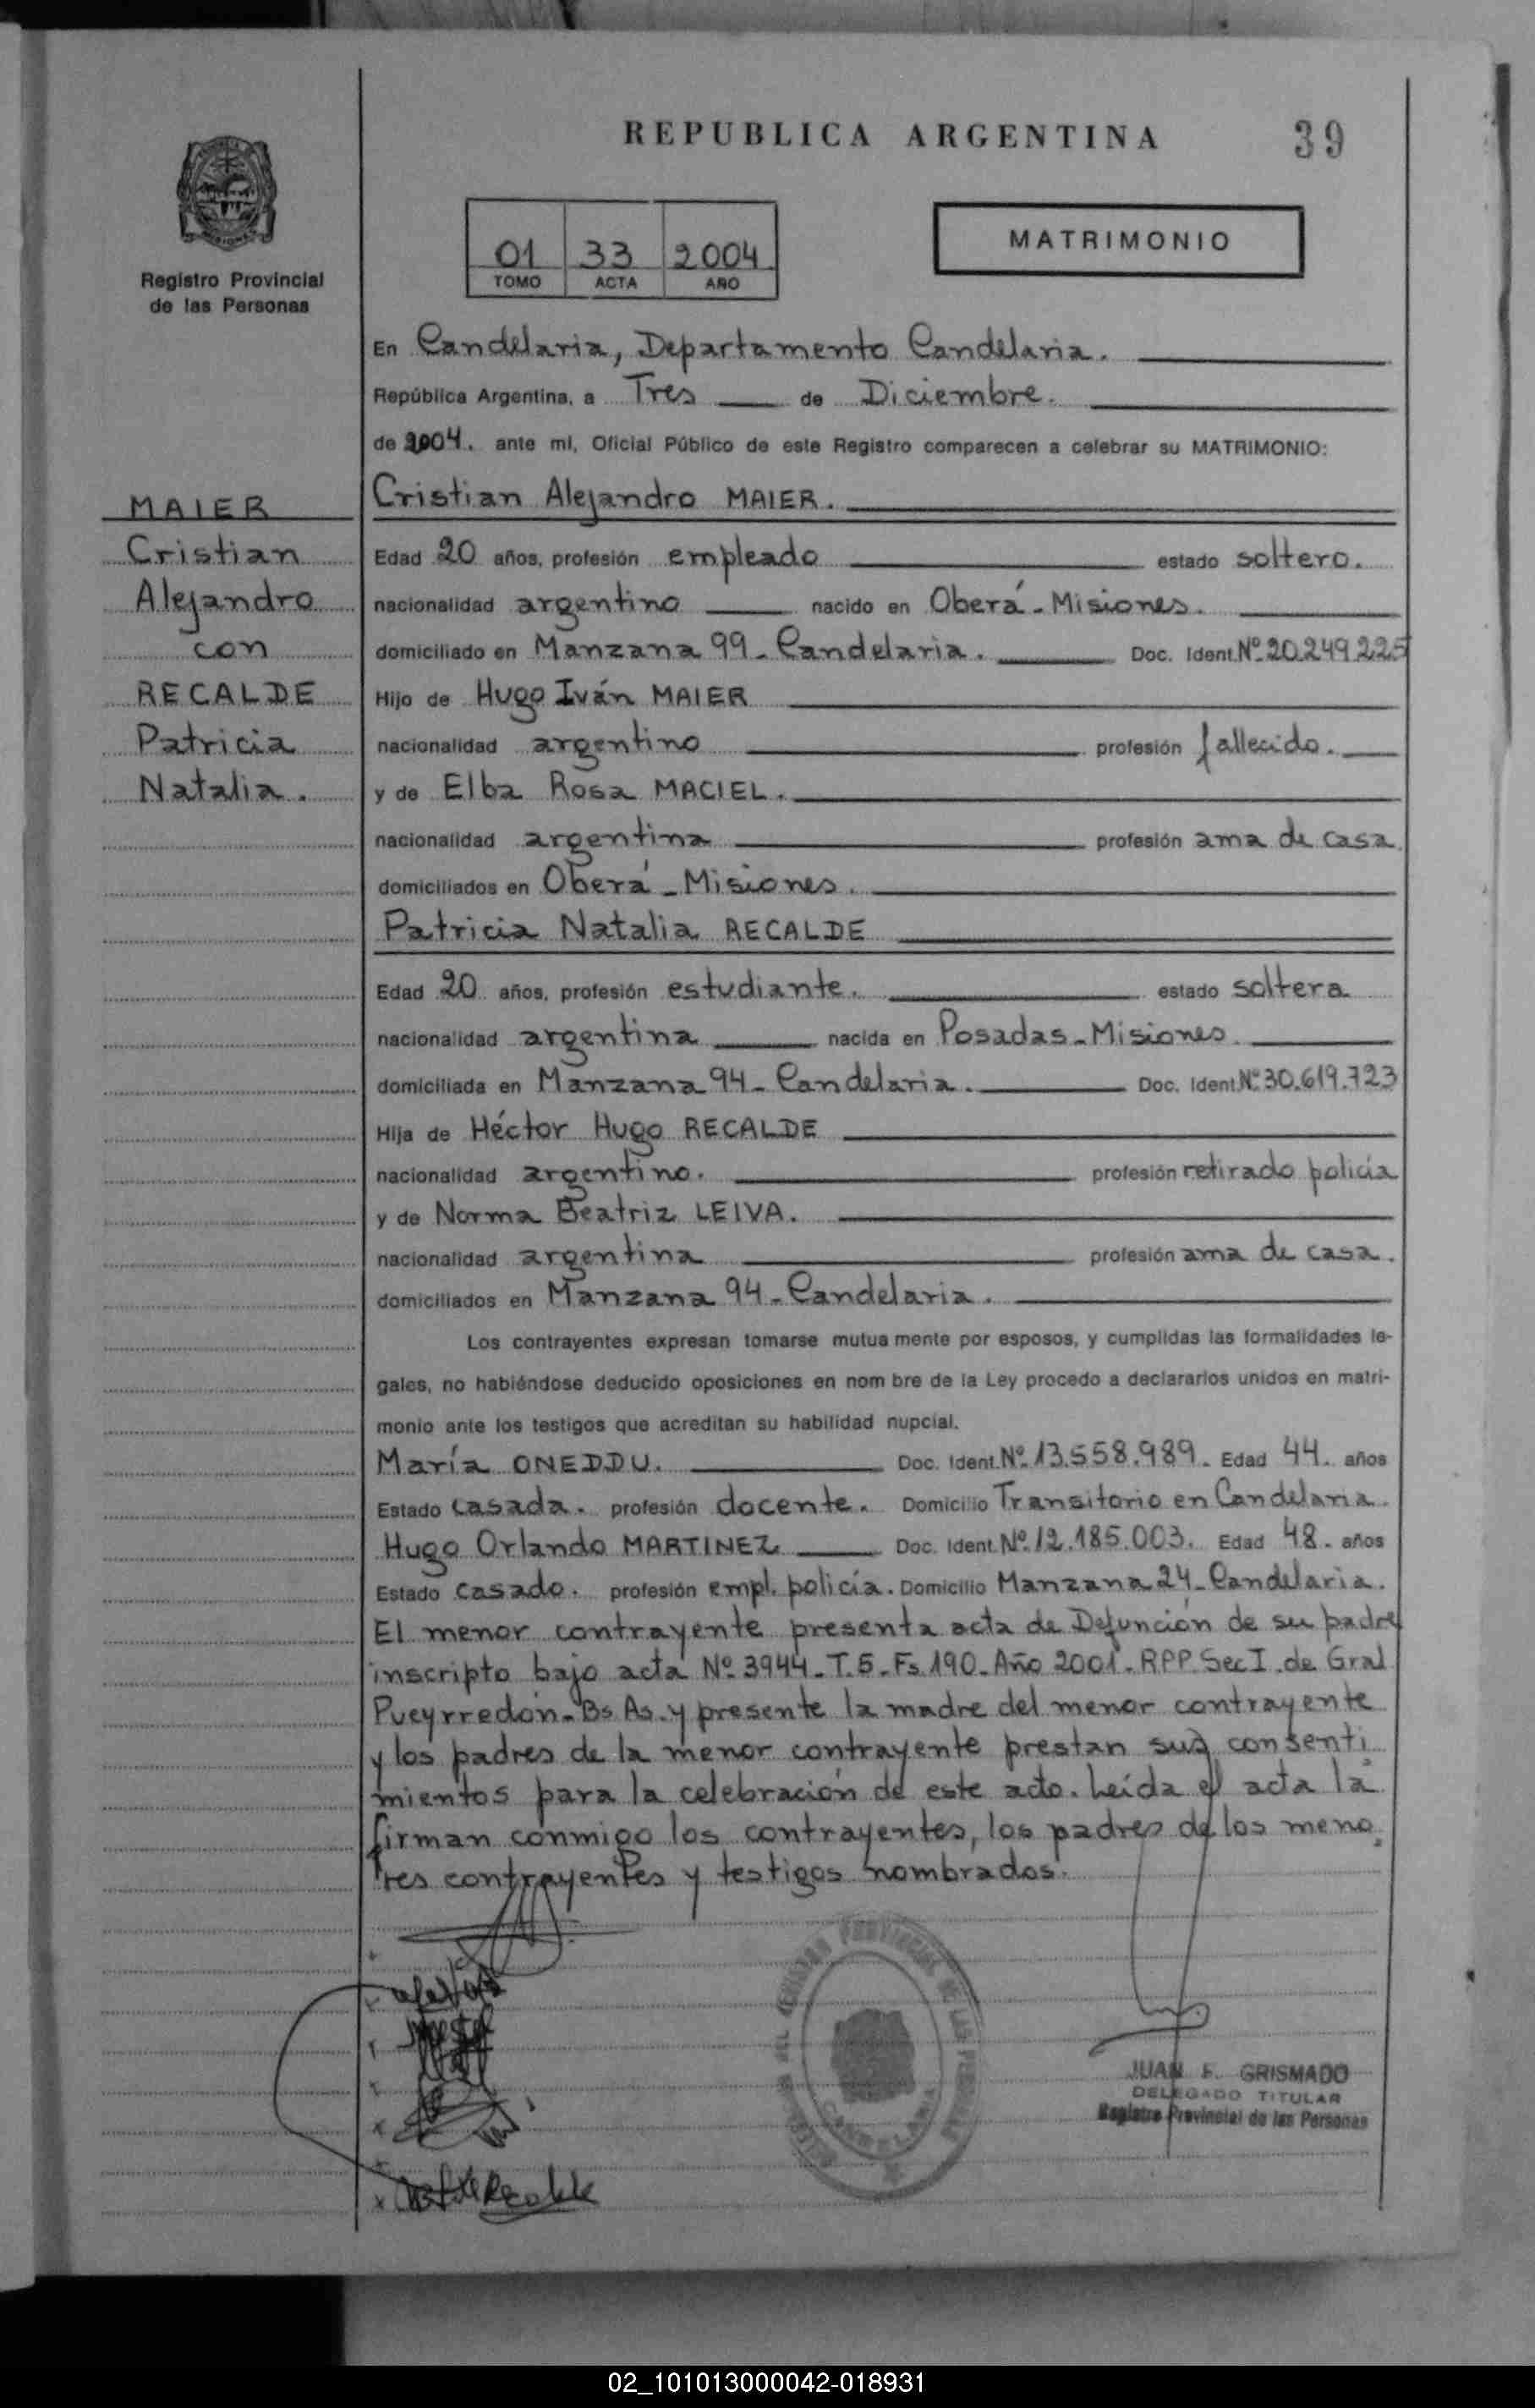 REPUBLICA ARGENTINA
39
MISIONES
Registro Provincial
de las Personas
01 33 2004
TOMO ACTA AÑO
MATRIMONIO
En Candelaria, Departamento Candelaria.
República Argentina, a Tres de Diciembre.
de 2004. ante mi, Oficial Público de este Registro comparecen a celebrar su MATRIMONIO:
MAIER
Cristian
Alejandro
con
RECALDE
Patricia
Natalia.
Cristian Alejandro MAIER.
Edad 20 años, profesión empleado estado soltero.
nacionalidad argentino nacido en Oberá - Misiones.
domiciliado en Manzana 99 - Candelaria. Doc. Ident. Nº 20.249.225
Hijo de Hugo Iván MAIER
nacionalidad argentino profesión fallecido.
y de Elba Rosa MACIEL.
nacionalidad argentina profesión ama de casa.
domiciliados en Oberá - Misiones.
Patricia Natalia RECALDE
Edad 20 años, profesión estudiante. estado soltera
nacionalidad argentina nacida en Posadas - Misiones.
domiciliada en Manzana 94 - Candelaria. Doc. Ident. Nº 30.619.723
Hija de Héctor Hugo RECALDE
nacionalidad argentino. profesión retirado policía
y de Norma Beatriz LEIVA.
nacionalidad argentina profesión ama de casa.
domiciliados en Manzana 94 - Candelaria.
Los contrayentes expresan tomarse mutua mente por esposos, y cumplidas las formalidades le-
gales, no habiéndose deducido oposiciones en nom bre de la Ley procedo a declararlos unidos en matri-
monio ante los testigos que acreditan su habilidad nupcial.
María ONEDDU. Doc. Ident. Nº 13.558.989. Edad 44. años
Estado casada. profesión docente. Domicilio Transitorio en Candelaria.
Hugo Orlando MARTINEZ Doc. Ident. Nº 12.185.003. Edad 48. años
Estado casado. profesión empl. policía. Domicilio Manzana 24 - Candelaria.
El menor contrayente presenta acta de Defunción de su padre
inscripto bajo acta Nº 3944 - T. 5 - Fs 190 - Año 2001 - RPP. Sec I. de Gral
Pueyrredón - Bs As. y presente la madre del menor contrayente
y los padres de la menor contrayente prestan sus consenti
mientos para la celebración de este acto. Leída el acta la
firman conmigo los contrayentes, los padres de los meno
res contrayentes y testigos nombrados.
PROVINCIAL DE LAS PERSONAS
CANDELARIA
JUAN F. GRISMADO
DELEGADO TITULAR
Registro Provincial de las Personas
Recalde
02_101013000042-018931